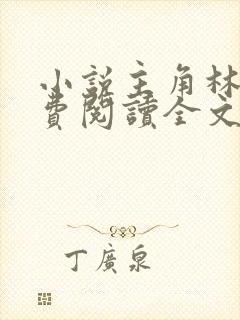 小說主角林
費閱讀全文
丁廣泉